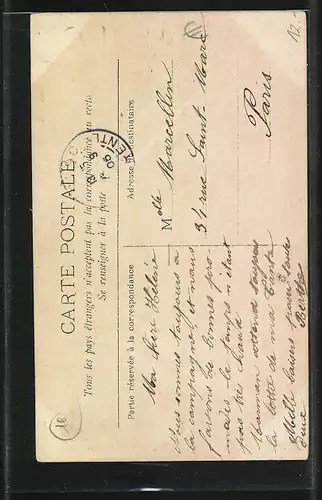 12.-
CARTE POSTALE
Tous les pays étrangers n'acceptent pas la correspondance au recto
Se renseigner à la poste
Partie réservée à la correspondance
Adresse du destinataire
Ma chère Hélène
Nous sommes toujours à
la campagne et nous
faisons de bonnes pro
menades le temps n'étant
pas très chaud
Maman attend toujours
la lettre de ta tante
Mille baisers pour toute
Berthe
Melle Marcellin
31 rue Saint-Marc
Paris